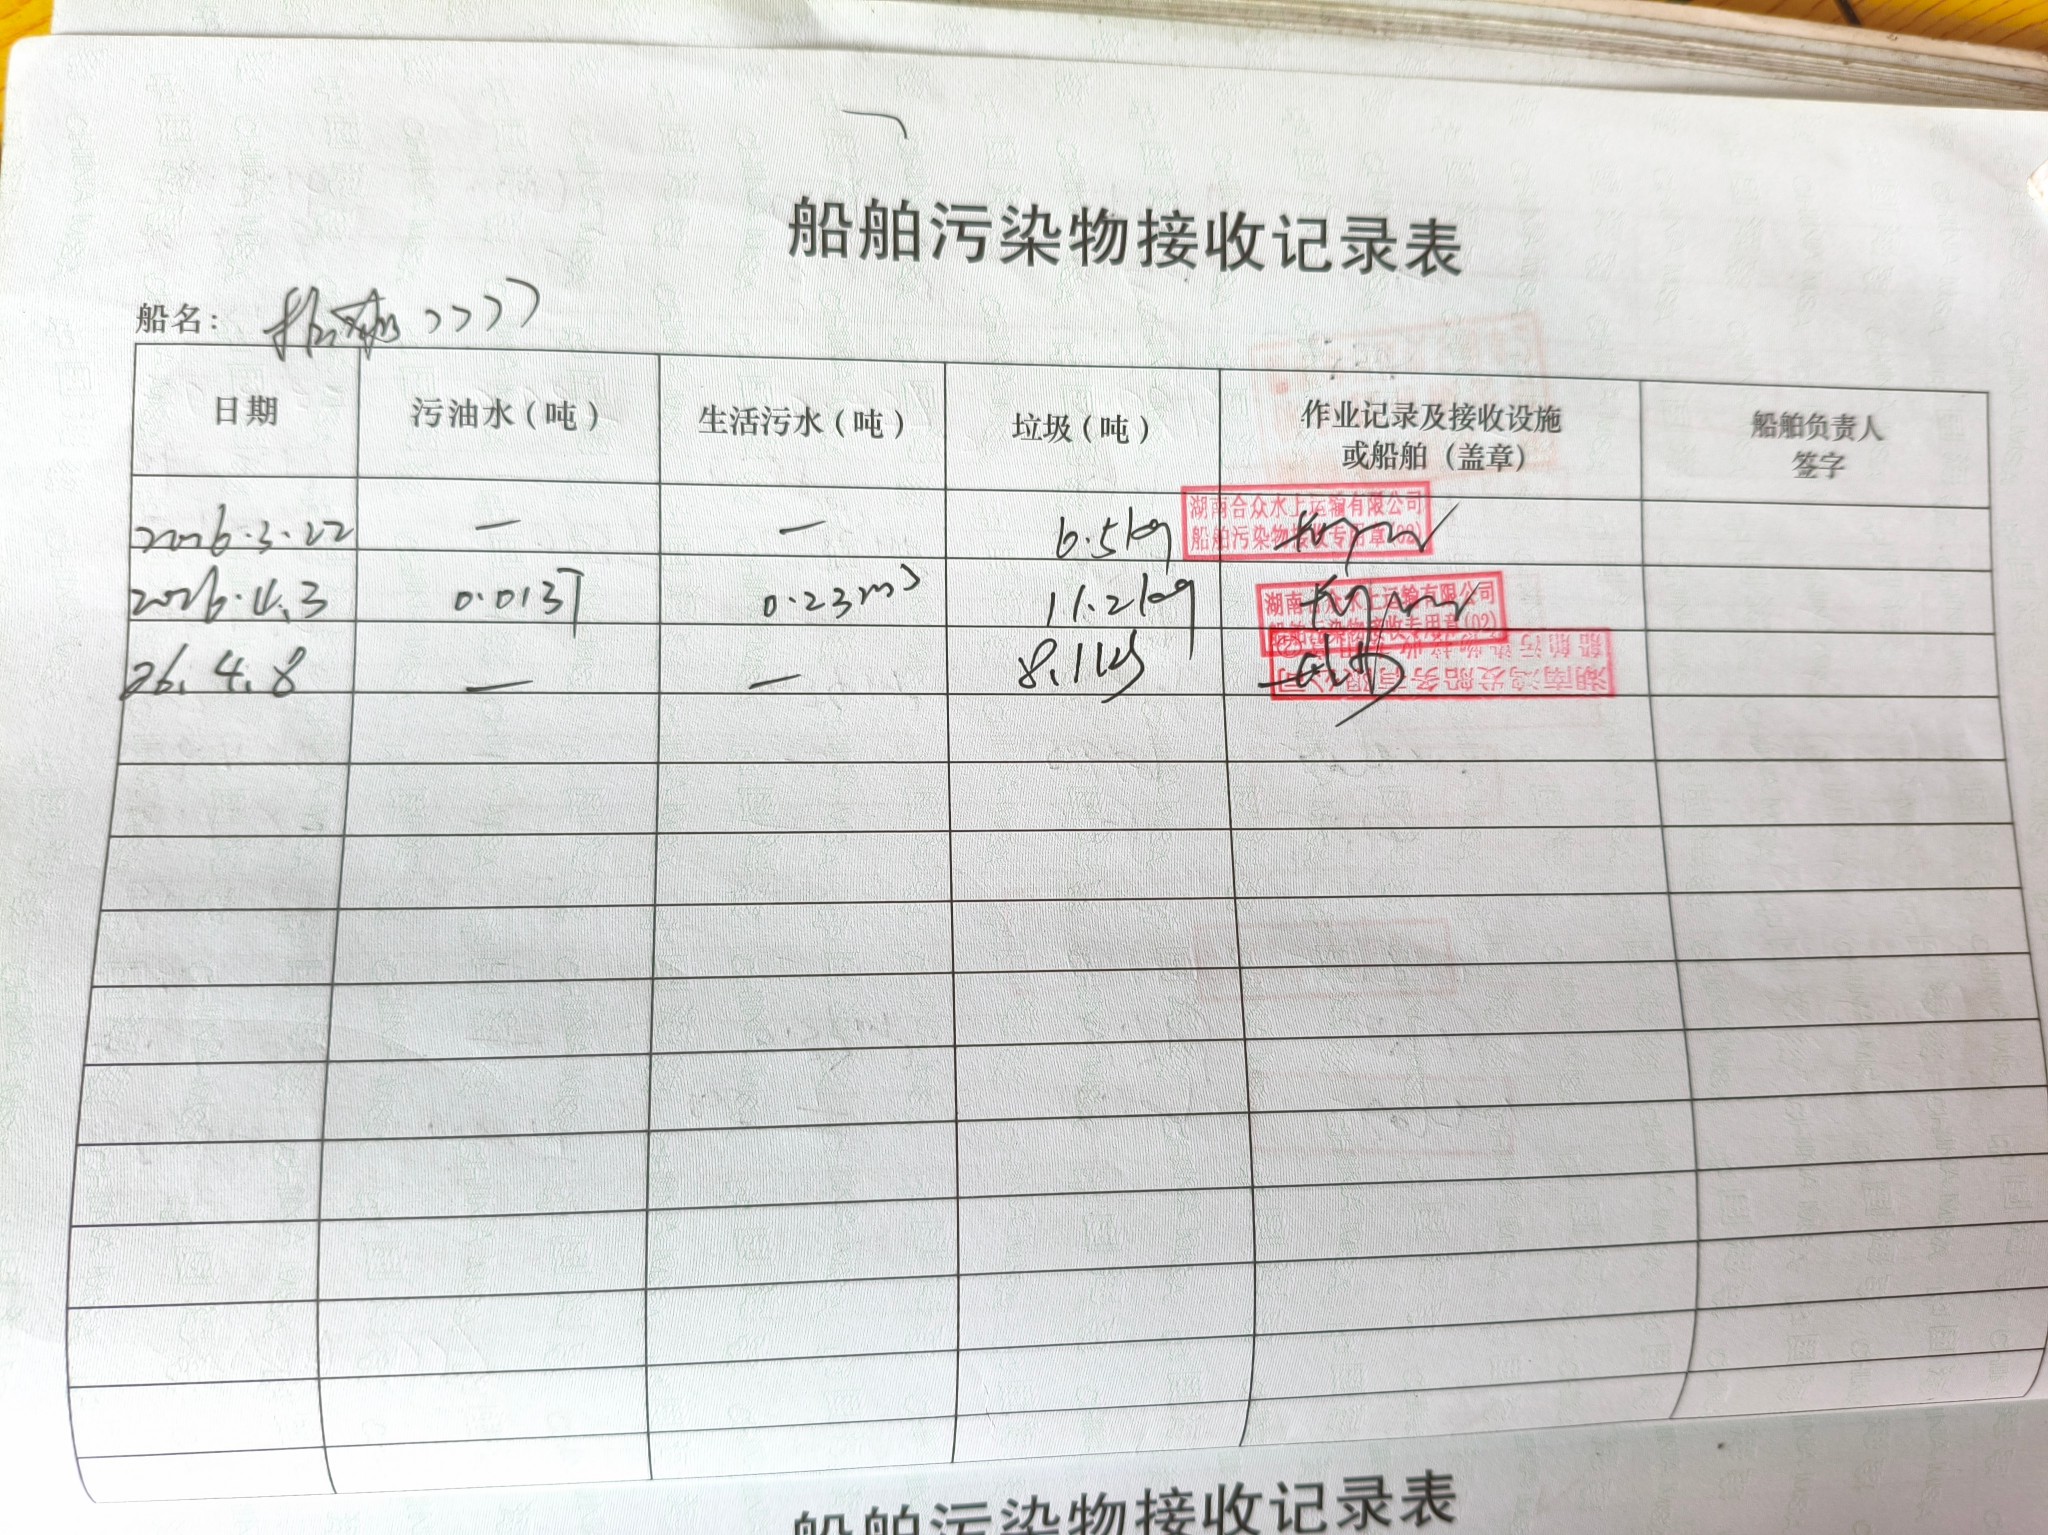 船舶污染物接收记录表
船名:
日期 污油水(吨) 生活污水(吨) 垃圾(吨) 作业记录及接收设施或船舶(盖章) 船舶负责人签字
2026.3.22 — — 6.5kg
湖南合众水上运输有限公司
船舶污染物接收专用章(02)
2026.4.3 0.013T 0.23m³ 11.2kg
湖南合众水上运输有限公司
船舶污染物接收专用章(02)
26.4.8 — — 8.1kg
船舶污染物接收记录表